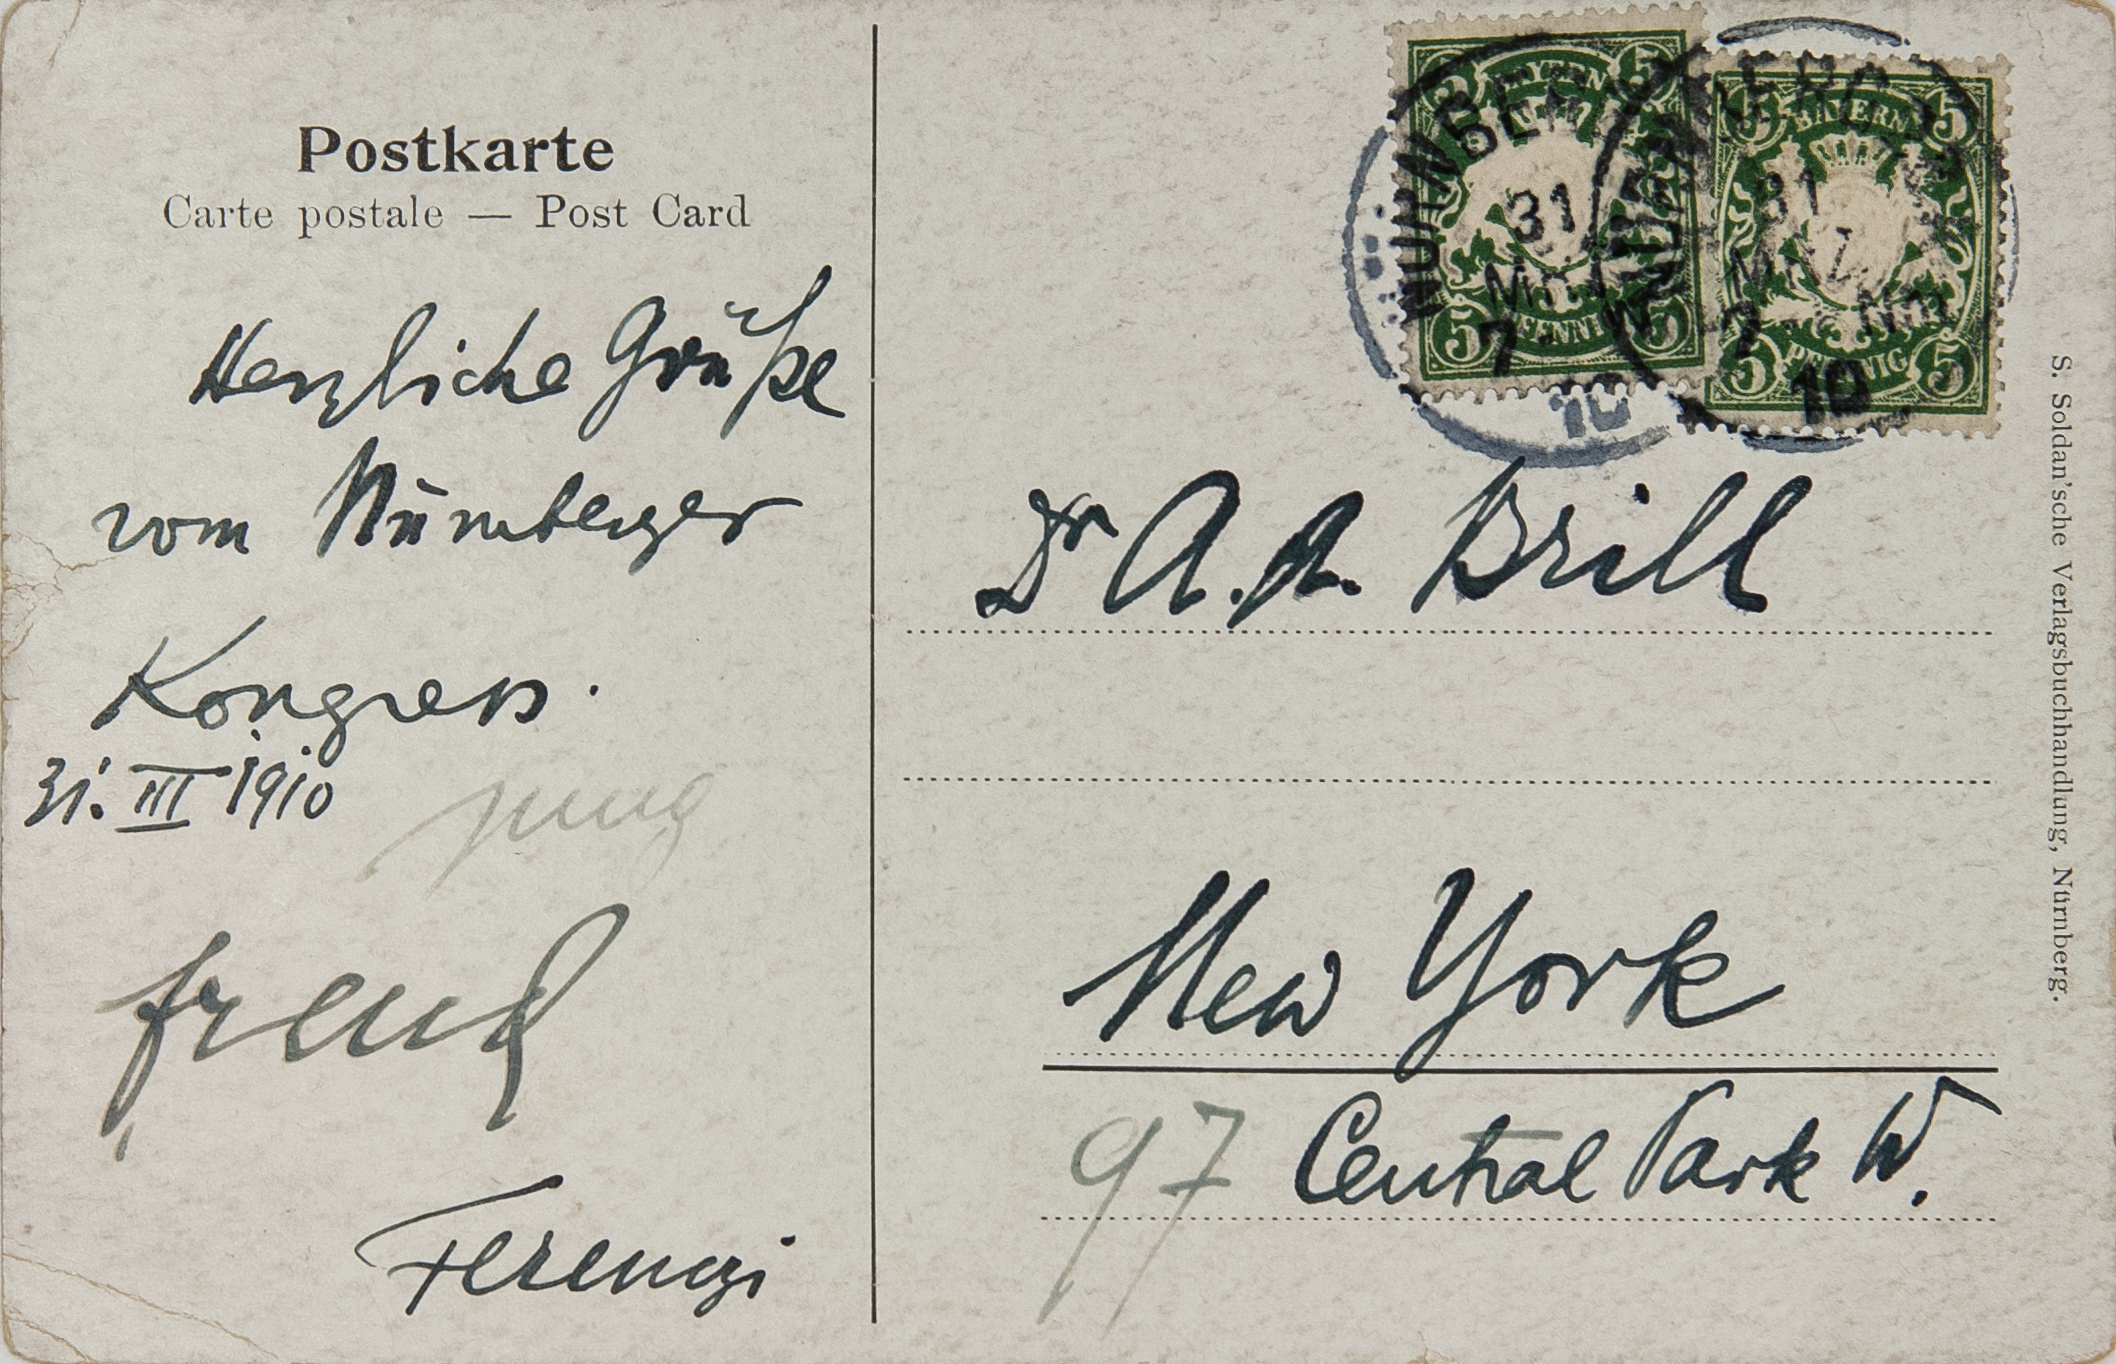 Postkarte
Carte postale — Post Card
Herzliche Grüße
vom Nürnberger
Kongress.
31. III 1910
Jung
Freud
Ferenczi
BAYERN
5 5 5 5
PFENNIG
NÜRNBERG
31
MRZ
7
10
BAYERN
5 5 5 5
PFENNIG
NÜRNBERG
31
MRZ
7 Nm
10
Dr A. A. Brill
New York
97 Central Park W.
S. Soldan'sche Verlagsbuchhandlung, Nürnberg.